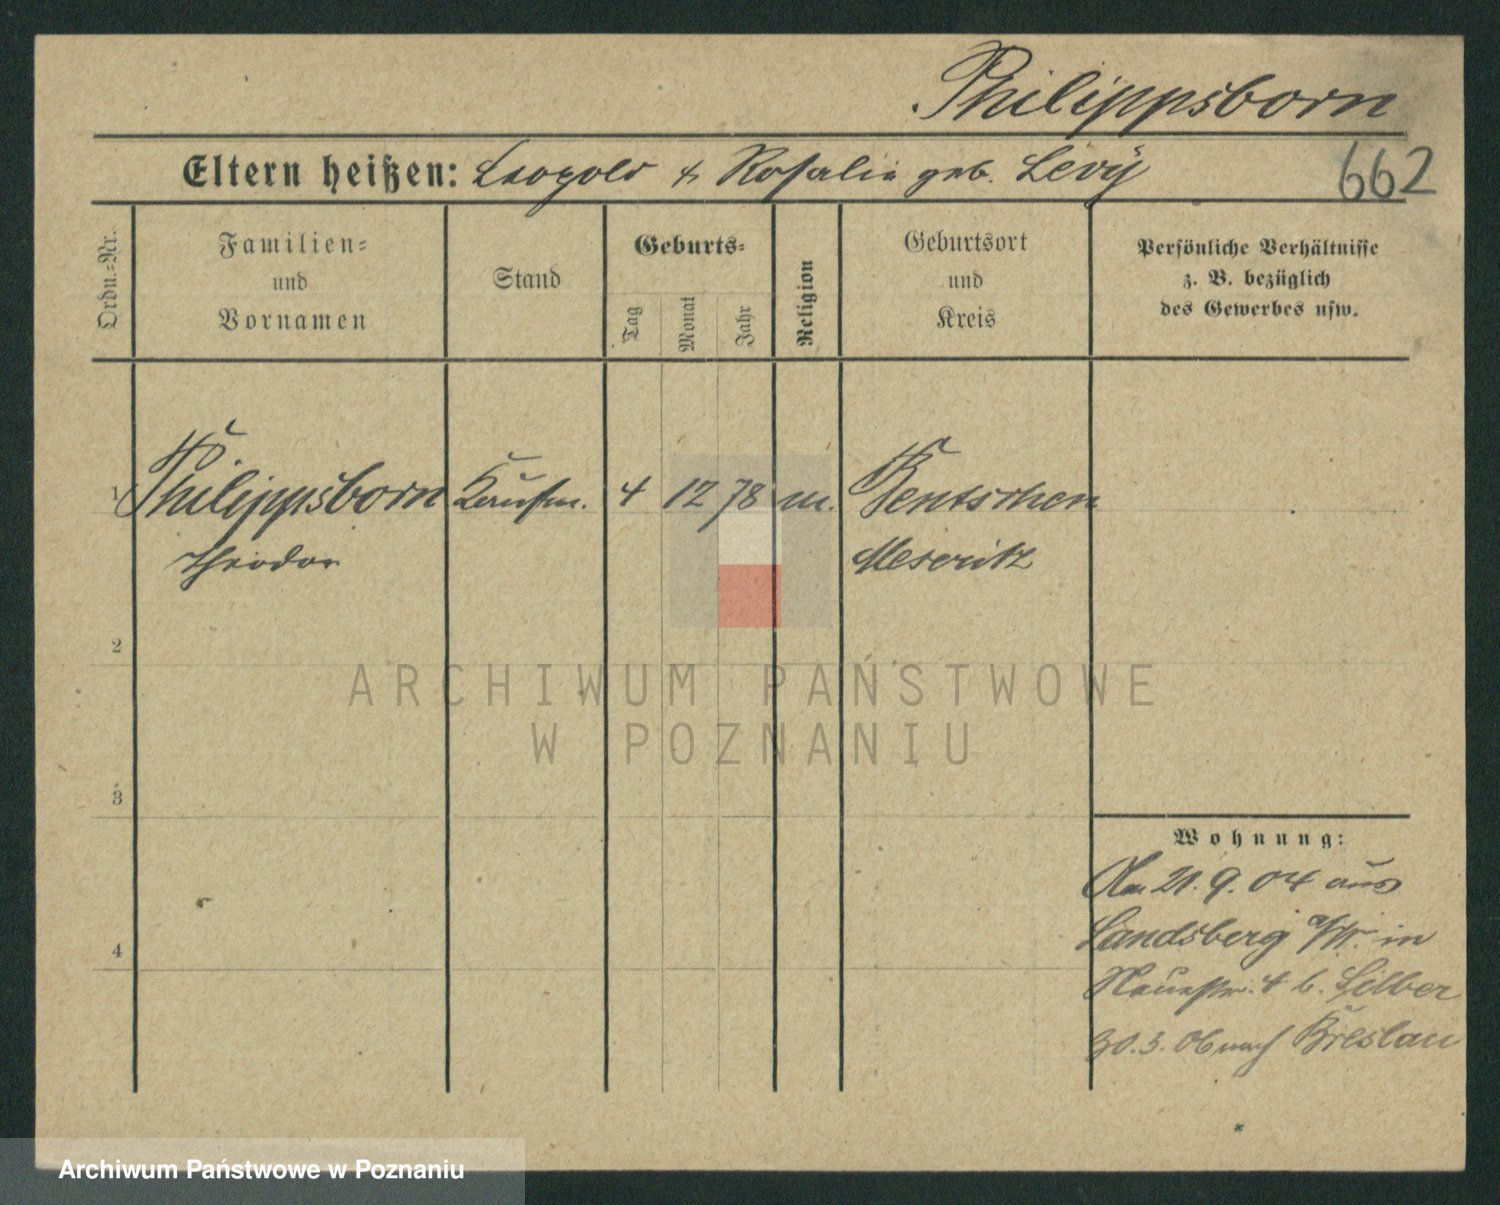 Philippsborn
Eltern heißen: Leopold & Rosalie geb. Levÿ
662
Ordn.-Nr.
Familien-
und
Vornamen
Stand
Geburts-
Tag
Monat
Jahr
Religion
Geburtsort
und
Kreis
Persönliche Verhältnisse
z. B. bezüglich
des Gewerbes usw.
1 Philippsborn Kaufm. 4 12 78 m. Bentschen
Theodor Meseritz
2
3
4
ARCHIWUM PAŃSTWOWE
W POZNANIU
Wohnung:
Am 21. 9. 04 aus
Landsberg a/W. in
4 b. Silber
30. 3. 06 nach Breslau
Archiwum Państwowe w Poznaniu